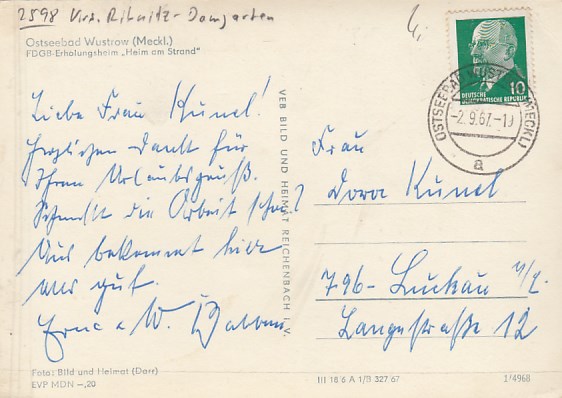 2598 Krs. Ribnitz-Damgarten
Ostseebad Wustrow (Meckl.)
FDGB-Erholungsheim „Heim am Strand"
Liebe Frau Kunel!
Herzlichen Dank für
Ihren Urlaubsgruß.
Schmeckt die Arbeit schon?
Uns bekommt hier
alles gut.
Erna u. W.
Foto: Bild und Heimat (Darr)
EVP MDN -,20
VEB BILD UND HEIMAT REICHENBACH I. V.
10
DEUTSCHE
DEMOKRATISCHE REPUBLIK
OSTSEEBAD WUSTROW (MECKL)
-2.9.67.-10
a
Frau
Dora Kunel
796-Luckau N/L.
Langestraße 12
III 18 6 A 1/B 327 67
1/4968